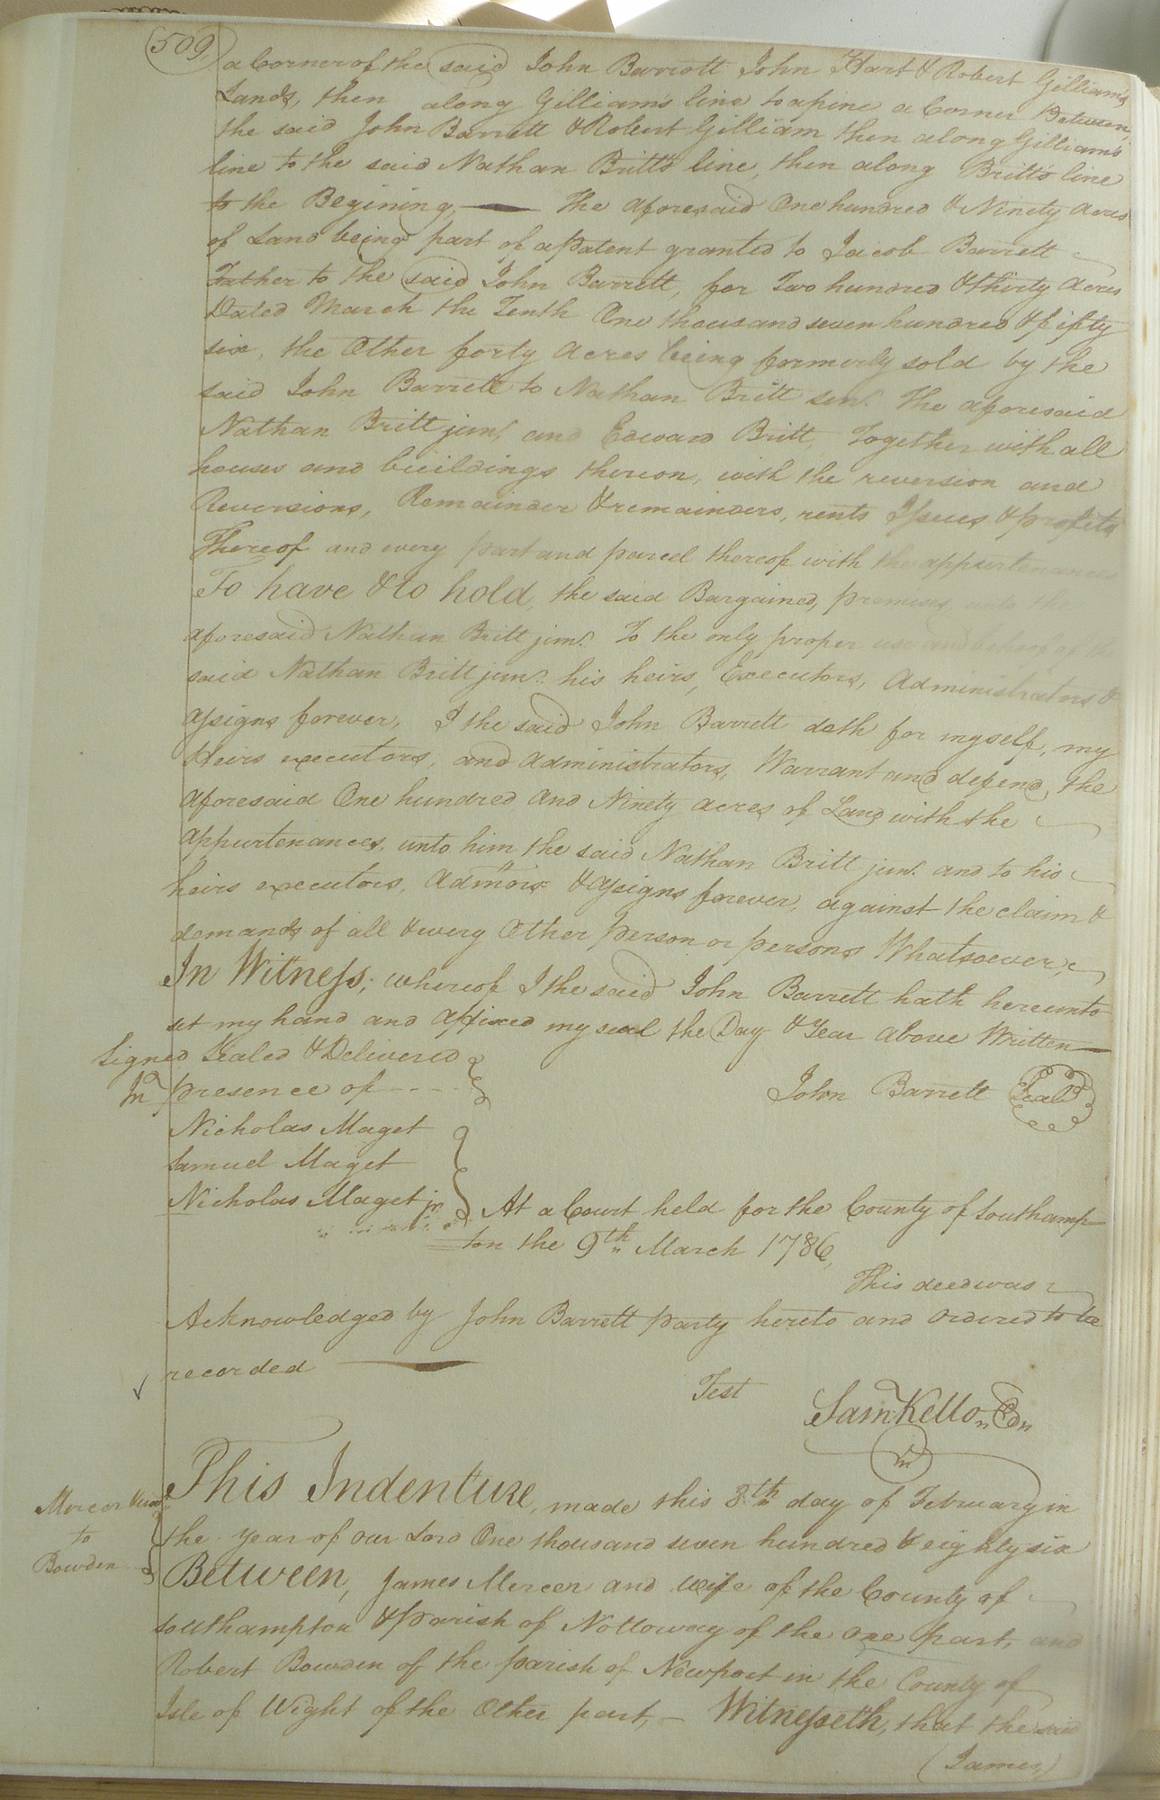 509
a Corner of the said John Barrott John Hart & Robert Gilliam's
Lands, then along Gilliam's line to a pine a Corner Between
the said John Barrett & Robert Gilliam then along Gilliam's
line to the said Nathan Britt's line, then along Britt's line
to the Begining, — The aforesaid One hundred & Ninety acres
of Land being part of a Patent granted to Jacob Barrett
Father to the said John Barrett, for Two hundred & thirty Acres
Dated March the Tenth One thousand seven hundred & fifty
six, the Other forty Acres being formerly sold by the
said John Barrett to Nathan Britt senr. the aforesaid
Nathan Britt junr. and Edward Britt, Together with all
houses and buildings thereon, with the reversion and
Reversions, Remainder & remainders, rents Issues & profits
Thereof and every part and parcel thereof with the appurtenances
To have & to hold, the said Bargained, premises, unto the
aforesaid Nathan Britt junr. To the only proper use and behoof of the
said Nathan Britt junr. his heirs, Executors, Administrators &
assigns forever, I the said John Barrett doth for myself, my
Heirs executors, and Administrators, Warrant and defend, the
aforesaid One hundred and Ninety acres of Land with the
appurtenances, unto him the said Nathan Britt junr. and to his
heirs executors, Admors & assigns forever, against the claim &
demands of all & every Other person or persons Whatsoever,
In Witness; whereof I the said John Barrett hath hereunto
set my hand and affixed my seal the Day & Year above Written—
Signed Sealed & Delivered
In presence of - - - -
John Barrett Seal
Nicholas Maget
Samuel Maget
Nicholas Maget jr.
At a Court held for the County of Southamp-
ton the 9th March 1786,
This deed was
Acknowledged by John Barrett party hereto and Ordered to be
recorded —
Test
Saml Kello
Mercer
to
Bowden
This Indenture, made this 8th day of February in
the year of our Lord One thousand seven hundred & eighty six
Between, James Mercer and wife of the County of
Southampton & Parish of Nottoway of the one part, and
Robert Bowden of the parish of Newport in the County of
Isle of Wight of the Other part, — Witnesseth, that the said
(James)